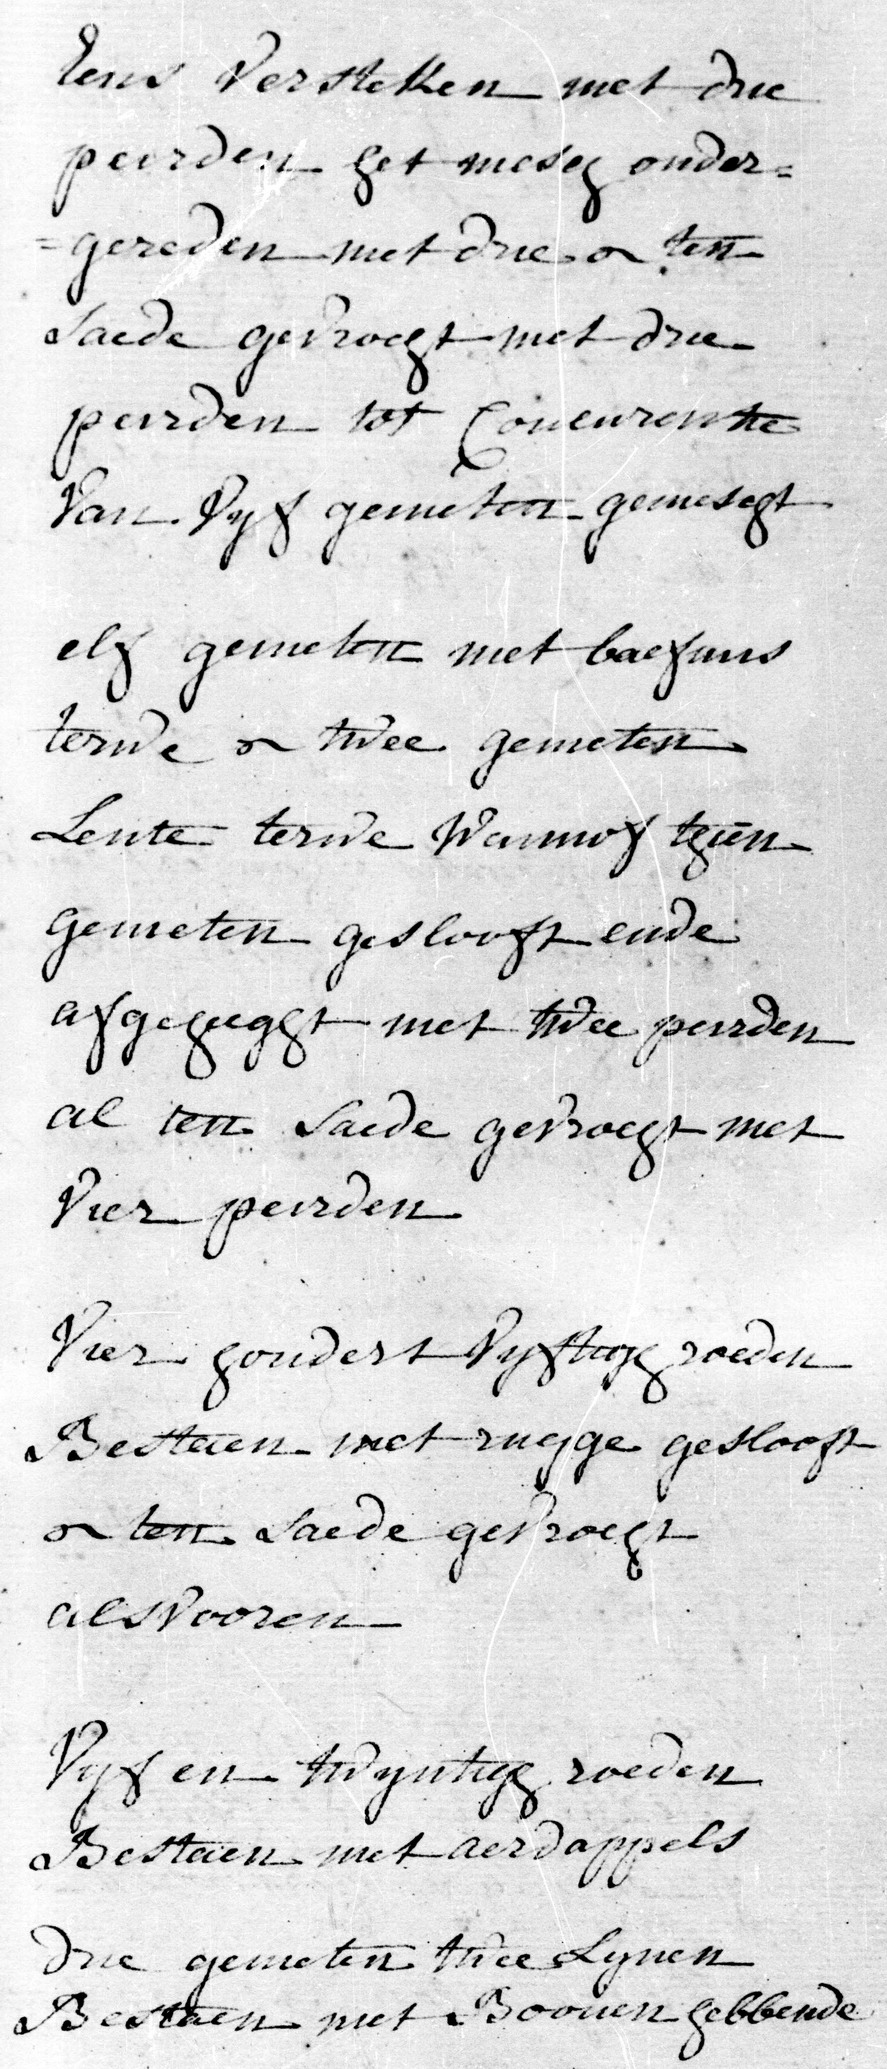 Eens Versteken met drie
peirden het mesch onder=
=gereden met drie en ten
Saede gevrocht met drie
peirden tot Concurentie
Van Vyf gemeten gemescht
elf gemeten met baefums
terwe en twee gemeten
Lente terwe Wannof thien
gemeten geslooft ende
afgeheght met twee peirden
al ten Saede gevrocht met
Vier peirden
Vier hondert Vyftigh roeden
Bestaen met rugge geslooft
en ten Saede gevrocht
alsvooren
Vyf en twyntigh roeden
Bestaen met aerdappels
drie gemeten twee Lynen
Bestaen met Boonen hebbende